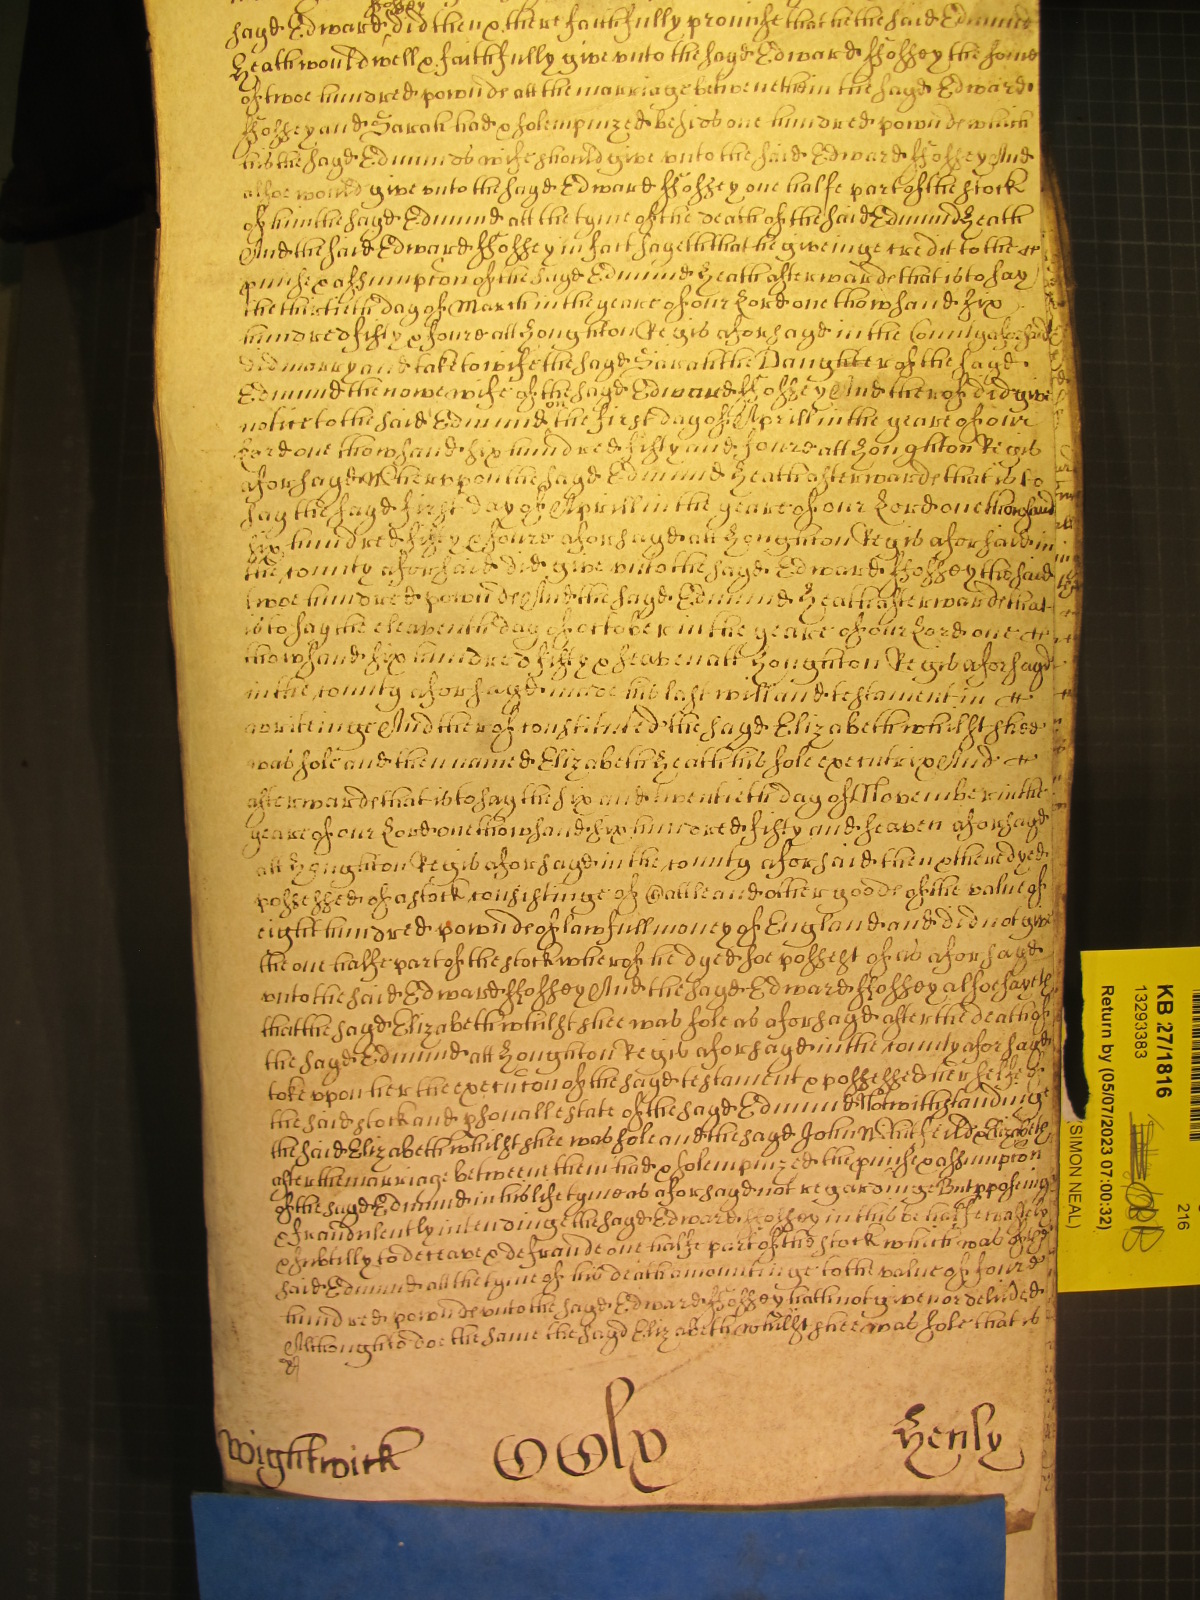 ffossey
sayd Edward did then & there faithfully promise that he the said Edmund
Heath would well & faithfully give unto the sayd Edward ffossey the some
of twoe hundred pownds att the marriage betweene him the sayd Edward
ffossey and Sarah had & solempnized besids one hundred pownds which
his the sayd Edmunds wife should give unto the said Edward ffossey And
alsoe would give unto the sayd Edward ffossey one halfe part of the stock
of him the sayd Edmund att the tyme of the death of the said Edmund Heath
And the said Edward ffossey in fact sayeth that he giveinge credit to the
pmise & assumpcon of the sayd Edmund Heath afterwards that is to say
the thirtieth day of March in the yeare of our Lord one thowsand six
hundred fifty & foure att Houghton Regis aforsayd in the County aforsaid
did marry and take to wife the sayd Sarah the Daughter of the sayd
Edmund the nowe wife of the sayd Edward ffossey And therof did give
notice to the said Edmund on the first day of Aprill in the yeare of our
Lord one thowsand six hundred fifty and foure att Houghton Regis
aforsayd Wherupon the sayd Edmund Heath afterwards that is to
say the sayd first day of Aprill in the yeare of our Lord one thowsand
six hundred fifty & foure aforsayd att Houghton Regis aforsaid in
the county aforsaid did give unto the sayd Edward ffossey the said
twoe hundred pownds And the sayd Edmund Heath afterwards that
is to say the eleaventh day of October in the yeare of our Lord one
thowsand six hundred fifty & seaven att Houghton Regis aforsayd
in the county aforsayd made his last will and testament in
writeinge And therof constituted the sayd Elizabeth whilst shee
was sole and then named Elizabeth Heath his sole executrix And
afterwards that is to say the six and twentieth day of November in the
yeare of our Lord one thowsand six hundred fifty and seaven aforsayd
att Houghton Regis aforsayd in the county aforsaid then & there dyed
possessed of a stock consistinge of Cattle and other goods of the value of
eight hundred pownds of lawfull money of England and did not give
the one halfe part of the stock wherof he dyed soe possest of as aforsayd
unto the said Edward ffossey And the sayd Edward ffossey alsoe sayeth
that the sayd Elizabeth whilst shee was sole as aforsayd after the death of
the sayd Edmund att Houghton Regis aforsayd in the county aforsayd
toke uppon her the execucon of the sayd testament & possessed her selfe of
the said stock and psonall estate of the sayd Edmund Notwithstandinge
the said Elizabeth whilst shee was sole and the sayd John & Elizabeth
after the marriage betweene them had & solempnized the pmise & assumpcon
of the sayd Edmund in his lifetyme as aforsayd not regardinge But pposeing
& fraudulently intendinge the sayd Edward ffossey in this behalfe
& subtilly to deceave & defraude one halfe part of the stock which was of the
said Edmund att the tyme of his death amountinge to the value of foure
hundred pownds unto the sayd Edward ffossey hath not given or delived
Although to doe the same the sayd Elizabeth whilst shee was sole that is
Wightwick
Henly
KB 27/1816
13293383
Return by (05/07/2023 07:00:32)
(SIMON NEAL)
216